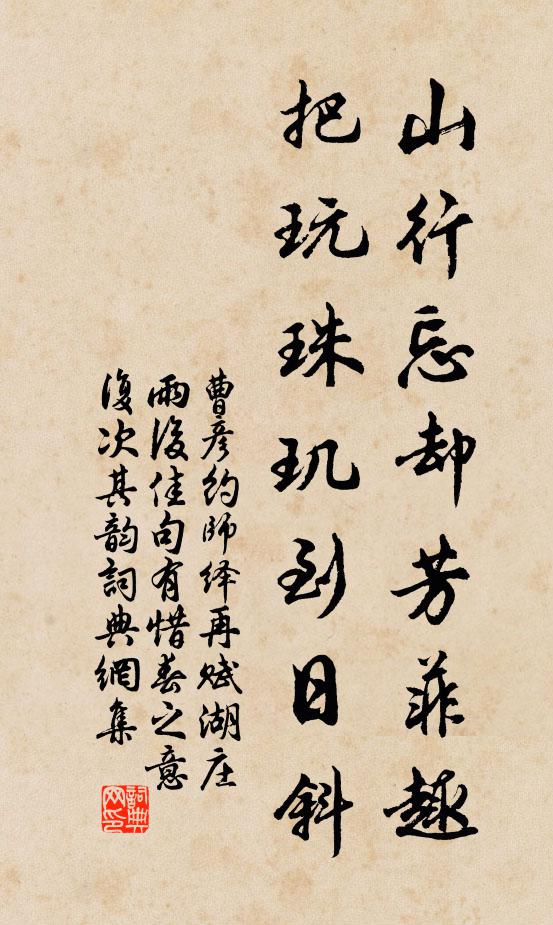 山行忘却芳菲趣
把玩珠玑到日斜
曹彦约師绎再赋湖庄
雨後佳句有惜春之意
復次其韵詞典網集
詞典网印